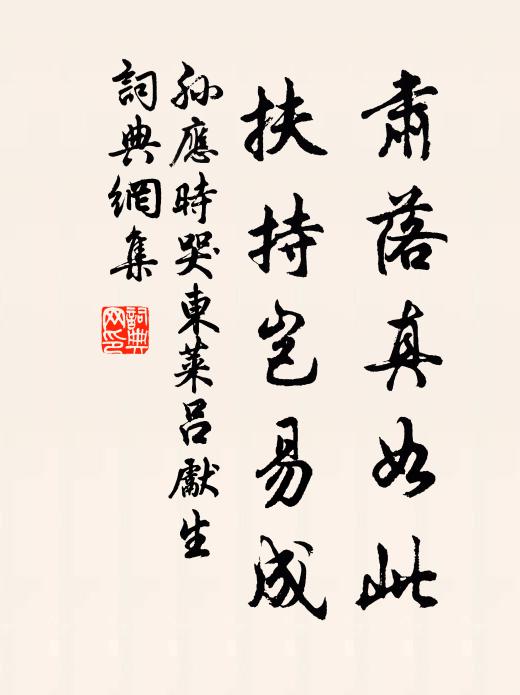 肅落真如此
扶持豈易成
孫應時哭東萊呂獻生
詞典網集
詞典
网印